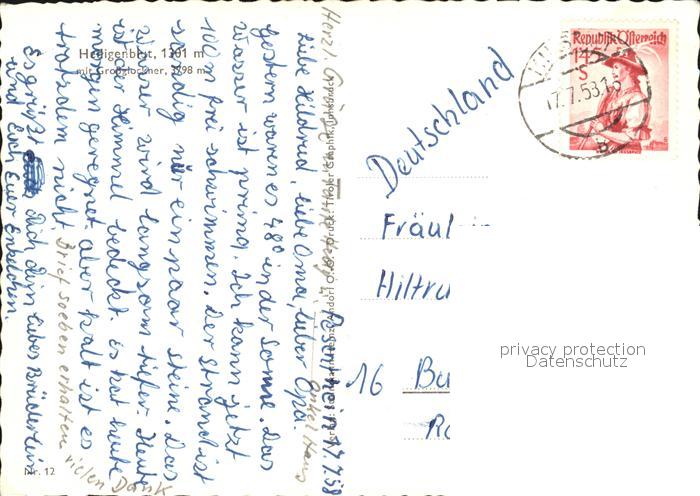 Heiligenblut, 1301 m
mit Großglockner, 3798 m
Pesenthein 17.7.58
Liebe Hildrud, liebe Oma, lieber Opa.
Gestern waren es 48° in der Sonne. Das
Wasser ist prima. Ich kann jetzt
100 m frei schwimmen. Der Strand ist
sandig nur ein paar Steine. Das
Wasser wird langsam tiefer. Heute
ist der Himmel bedeckt. es hat heute
morgen geregnet aber kalt ist es
trotzdem nicht.
Es grüßt Dich dein liebes Brüderlein
und Euch Euer Enkelchen.
Brief soeben erhalten vielen Dank
Herzl.
Onkel Hans
Nr. 12
Deutschland
Fräul
Hiltru
16 Bu
Republik Österreich
1.45
S
17.7.58.15
b
privacy protection
Datenschutz